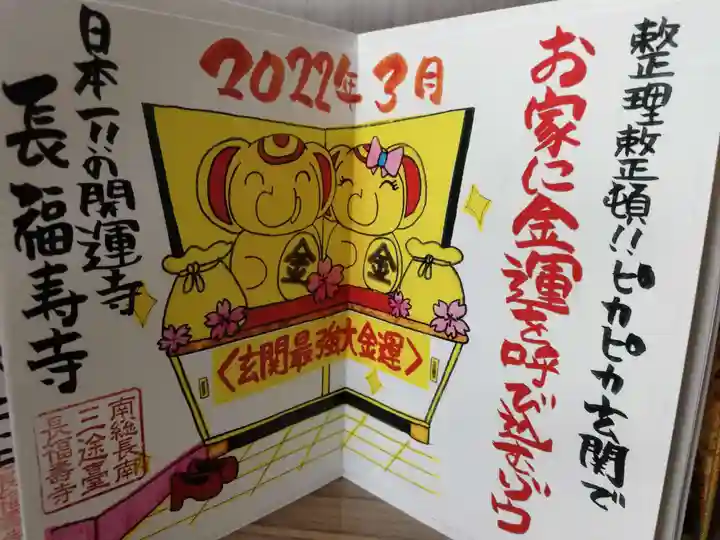 2022年3月
整理整頓!!ピカピカ玄関で
お家に金運を呼び込むゾウ
日本一!!の開運寺
長福寿寺
金
金
〈玄関最強大金運〉
南総長南
三途臺
長福壽寺